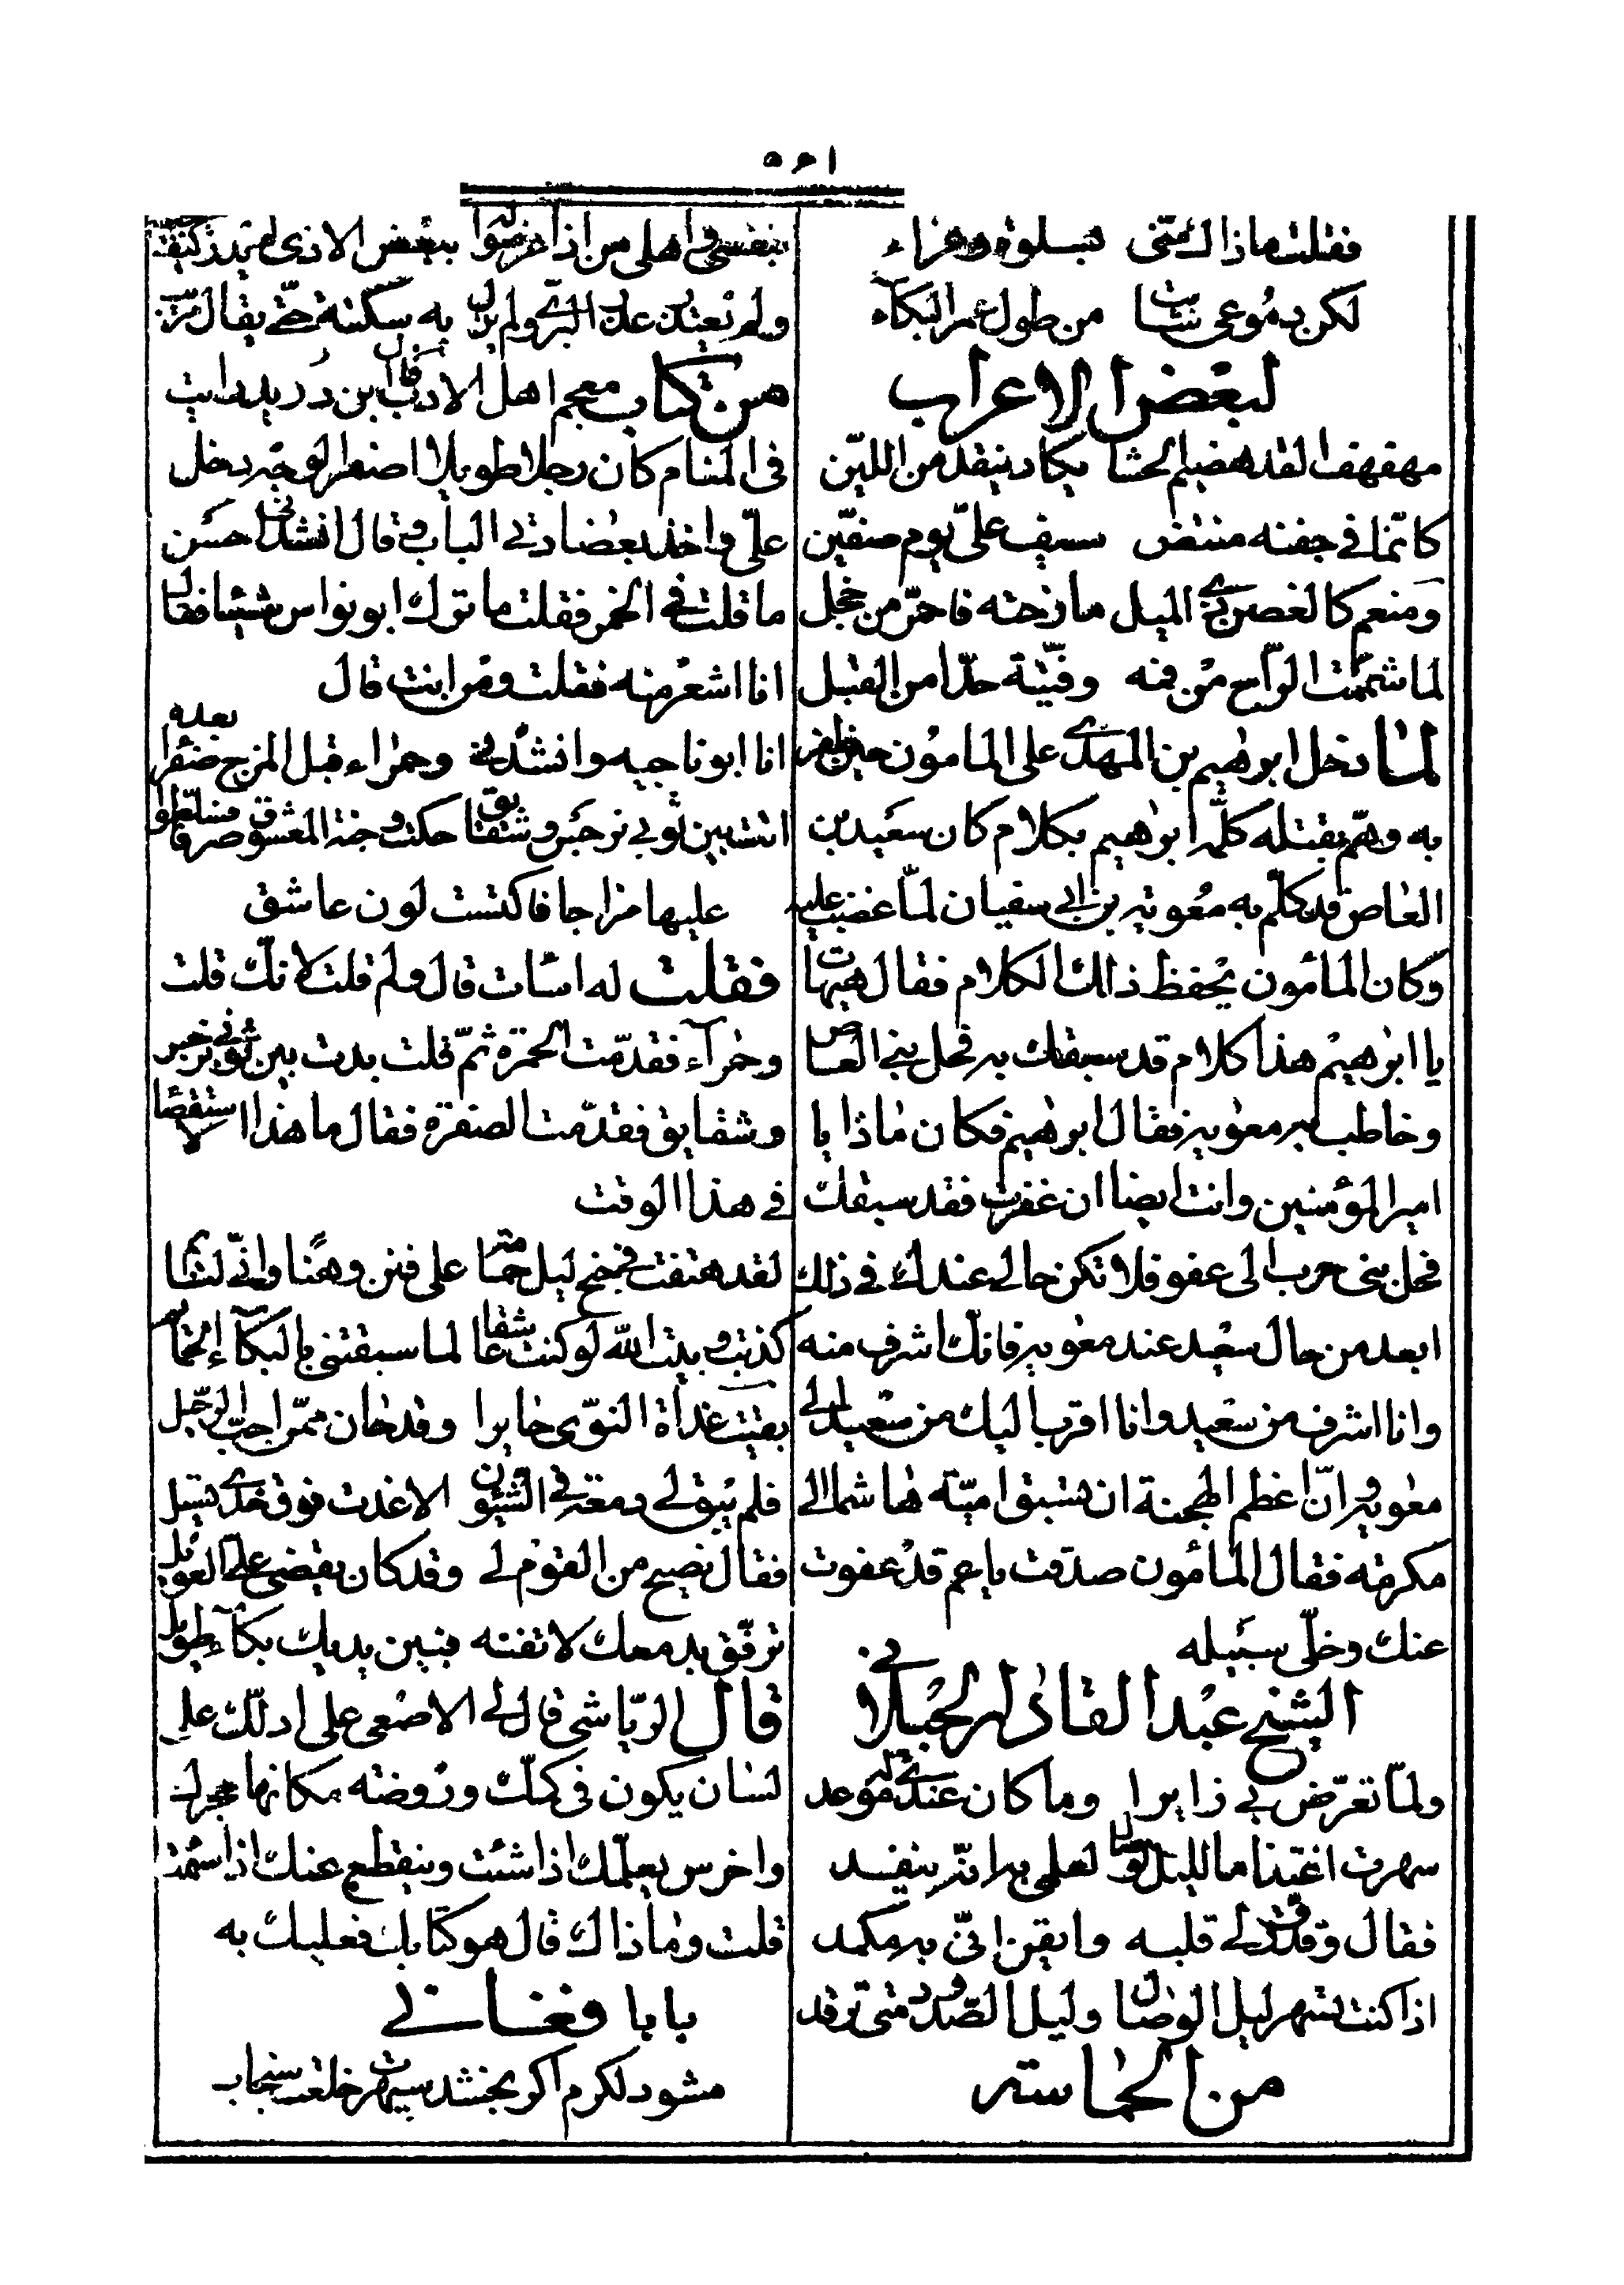 ٥٦١
فقلت ماذاك منّى لسلوة وعزاء
لكن دموعى شابت من طول عمر البكآء
لبعض الاعراب
مهفهف القد هضيم الحشا يكاد ينقد من اللين
كانّما فى جفنه منتض سيف علىّ يوم صفّين
ومنعم كالغصن ذى الميل مازحته فاحمرّ من خجل
لما شممت الرّاح من فمه وفّيته حدّا من القبل
لمّا دخل ابرهيم بن المهدى على المامون حين ظفر
به وهمّ بقتله كلّمه ابرهيم بكلام كان سعيد بن
العاص قد كلّم به معوية بن ابى سفيان لمّا غضب عليه
وكان المامون يحفظ ذلك الكلام فقال هيهات
يا ابرهيم هذا كلام قد سبقك به فحل بنى العاص
وخاطب به معوية فقال ابرهيم فكان ماذا يا
امير المؤمنين وانت ايضا ان غفرت فقد سبقك
فحل بنى حرب الى عفو فلا تكن حالى عندك فى ذلك
ابعد من حال سعيد عند معوية فانك اشرف منه
وانا اشرف من سعيد وانا اقرب اليك من سعيد الى
معوية وانّ اعظم الهجنة ان تسبق اميّة هاشما الى
مكرمة فقال المامون صدقت يا عم قد عفوت
عنك وخلّى سبيله
الشيخ عبد القادر الجيلانى
ولمّا تعرّض بى زايرا وما كان عندى له موعد
سهرت اغتناما لليل الوصال لعلمى به انّه ينفد
فقال وقد رقّ لى قلبه وايقن انّى به مكمد
اذا كنت تسهر ليل الوصال وليل الصّدود متى ترقد
من الحماسة
بنفسى واهلى من اذا عرضوا له ببعض الاذى لم يدر كيف يجيب
ولم يعتذر عذر البرى ولم تزل به سكتة حتى يقال مريب
من كتاب معجم اهل الادب قال ابن دريد رايت
فى المنام كان رجلا طويلا اصفر الوجه دخل
علىّ واخذ بعضادتى الباب وقال انشدنى احسن
ما قلت فى الخمر فقلت ما ترك ابو نواس شيئا فقال
انا اشعر منه فقلت ومن انت قال
انا ابو ناجيه وانشدنى وحمراء قبل المزج صفراء بعده
اتت بين ثوبى نرجس وشقايق حكت وجنة المعشوق صرفا فسلّطوا
عليها مزاجا فاكتست لون عاشق
فقلت له اسات قال ولم قلت لانّك قلت
وحمرآء فقدّمت الحمرة ثمّ قلت بدت بين ثوبى نرجس
وشقايق فقدّمت الصفرة فقال ما هذا الاستقصا
فى هذا الوقت
لقد هتفت فى جنح ليل حمامة على فنن وهنا وانّى لنائم
كذبت وبيت اللّه لو كنت عاشقا لما سبقتنى بالبكآء الحمائم
بقيت غداة النّوى حايرا وقد حان ممّن احبّ الرّحيل
فلم يبق لى دمعة فى الشئون الا غدت فوق خدّى تسيل
فقال نصيح من القوم لى وقد كان يقضى علىّ العويل
ترفّق بدمعك لا تفنه فبين يديك بكآء طويل
قال الرّياشى قال لى الاصمعى على ادلّك على
لسان يكون فى كمّك وروضة مكانها حجرك
واخرس يعلّمك اذا شئت وينقطع عنك اذا سئمت
قلت وماذاك قال هو كتابك فعليك به
بابا فغانى
مشود لكرم اكر بخشد سپهرت خلعت سنجاب